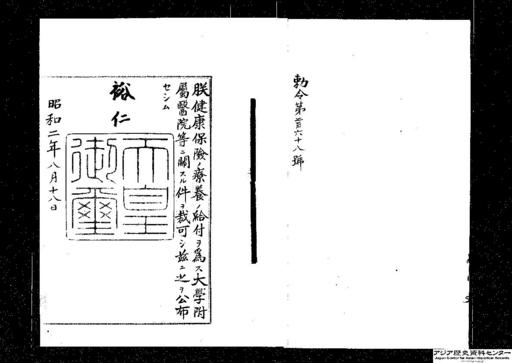 勅令第二百六十八號
朕健康保險ノ療養ノ給付ヲ爲ス大學附
屬醫院等ニ關スル件ヲ裁可シ茲ニ之ヲ公布
セシム
裕仁
天皇
御璽
昭和二年八月十八日
アジア歴史資料センター
Japan Center for Asian Historical Records